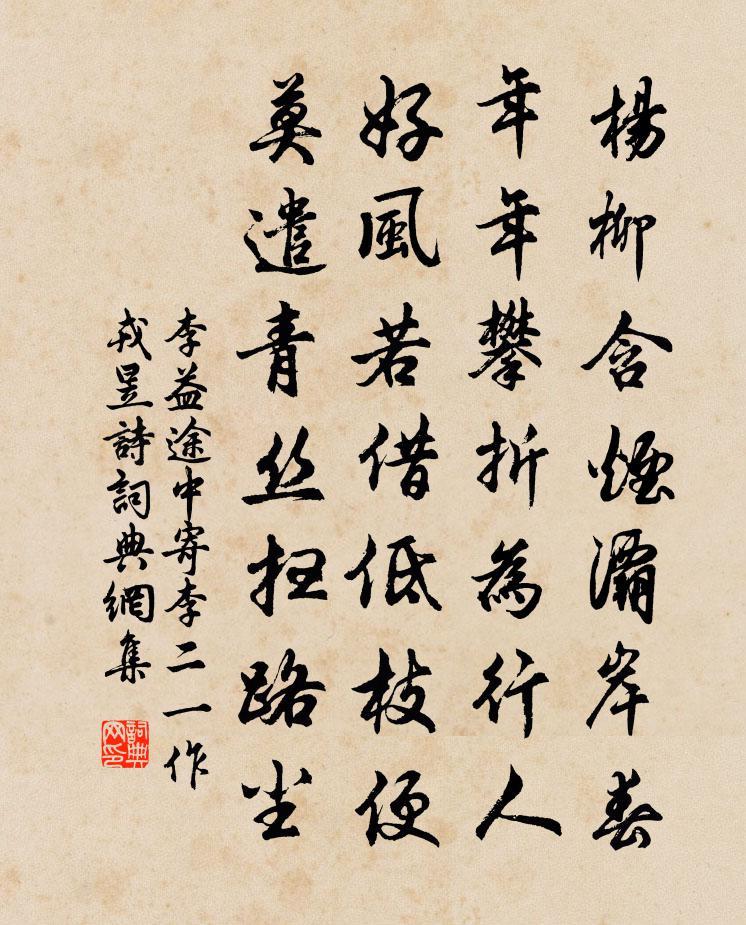 楊柳含煙灞岸春
年年攀折為行人
好風若借低枝便
莫遣青丝扫路尘
李益途中寄李二一作
戎昱詩詞典網集
詞典网印